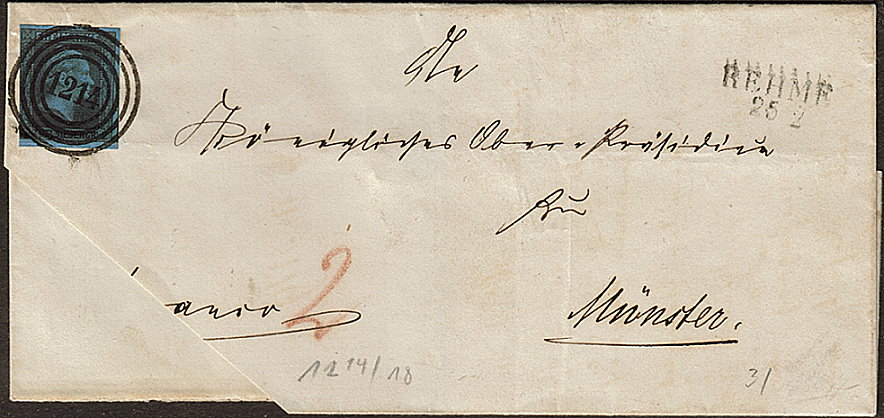 1214
REHME
25 2
An
Königliches Ober-Präsidium
zu
anco
2
Münster.
11 14/18
31